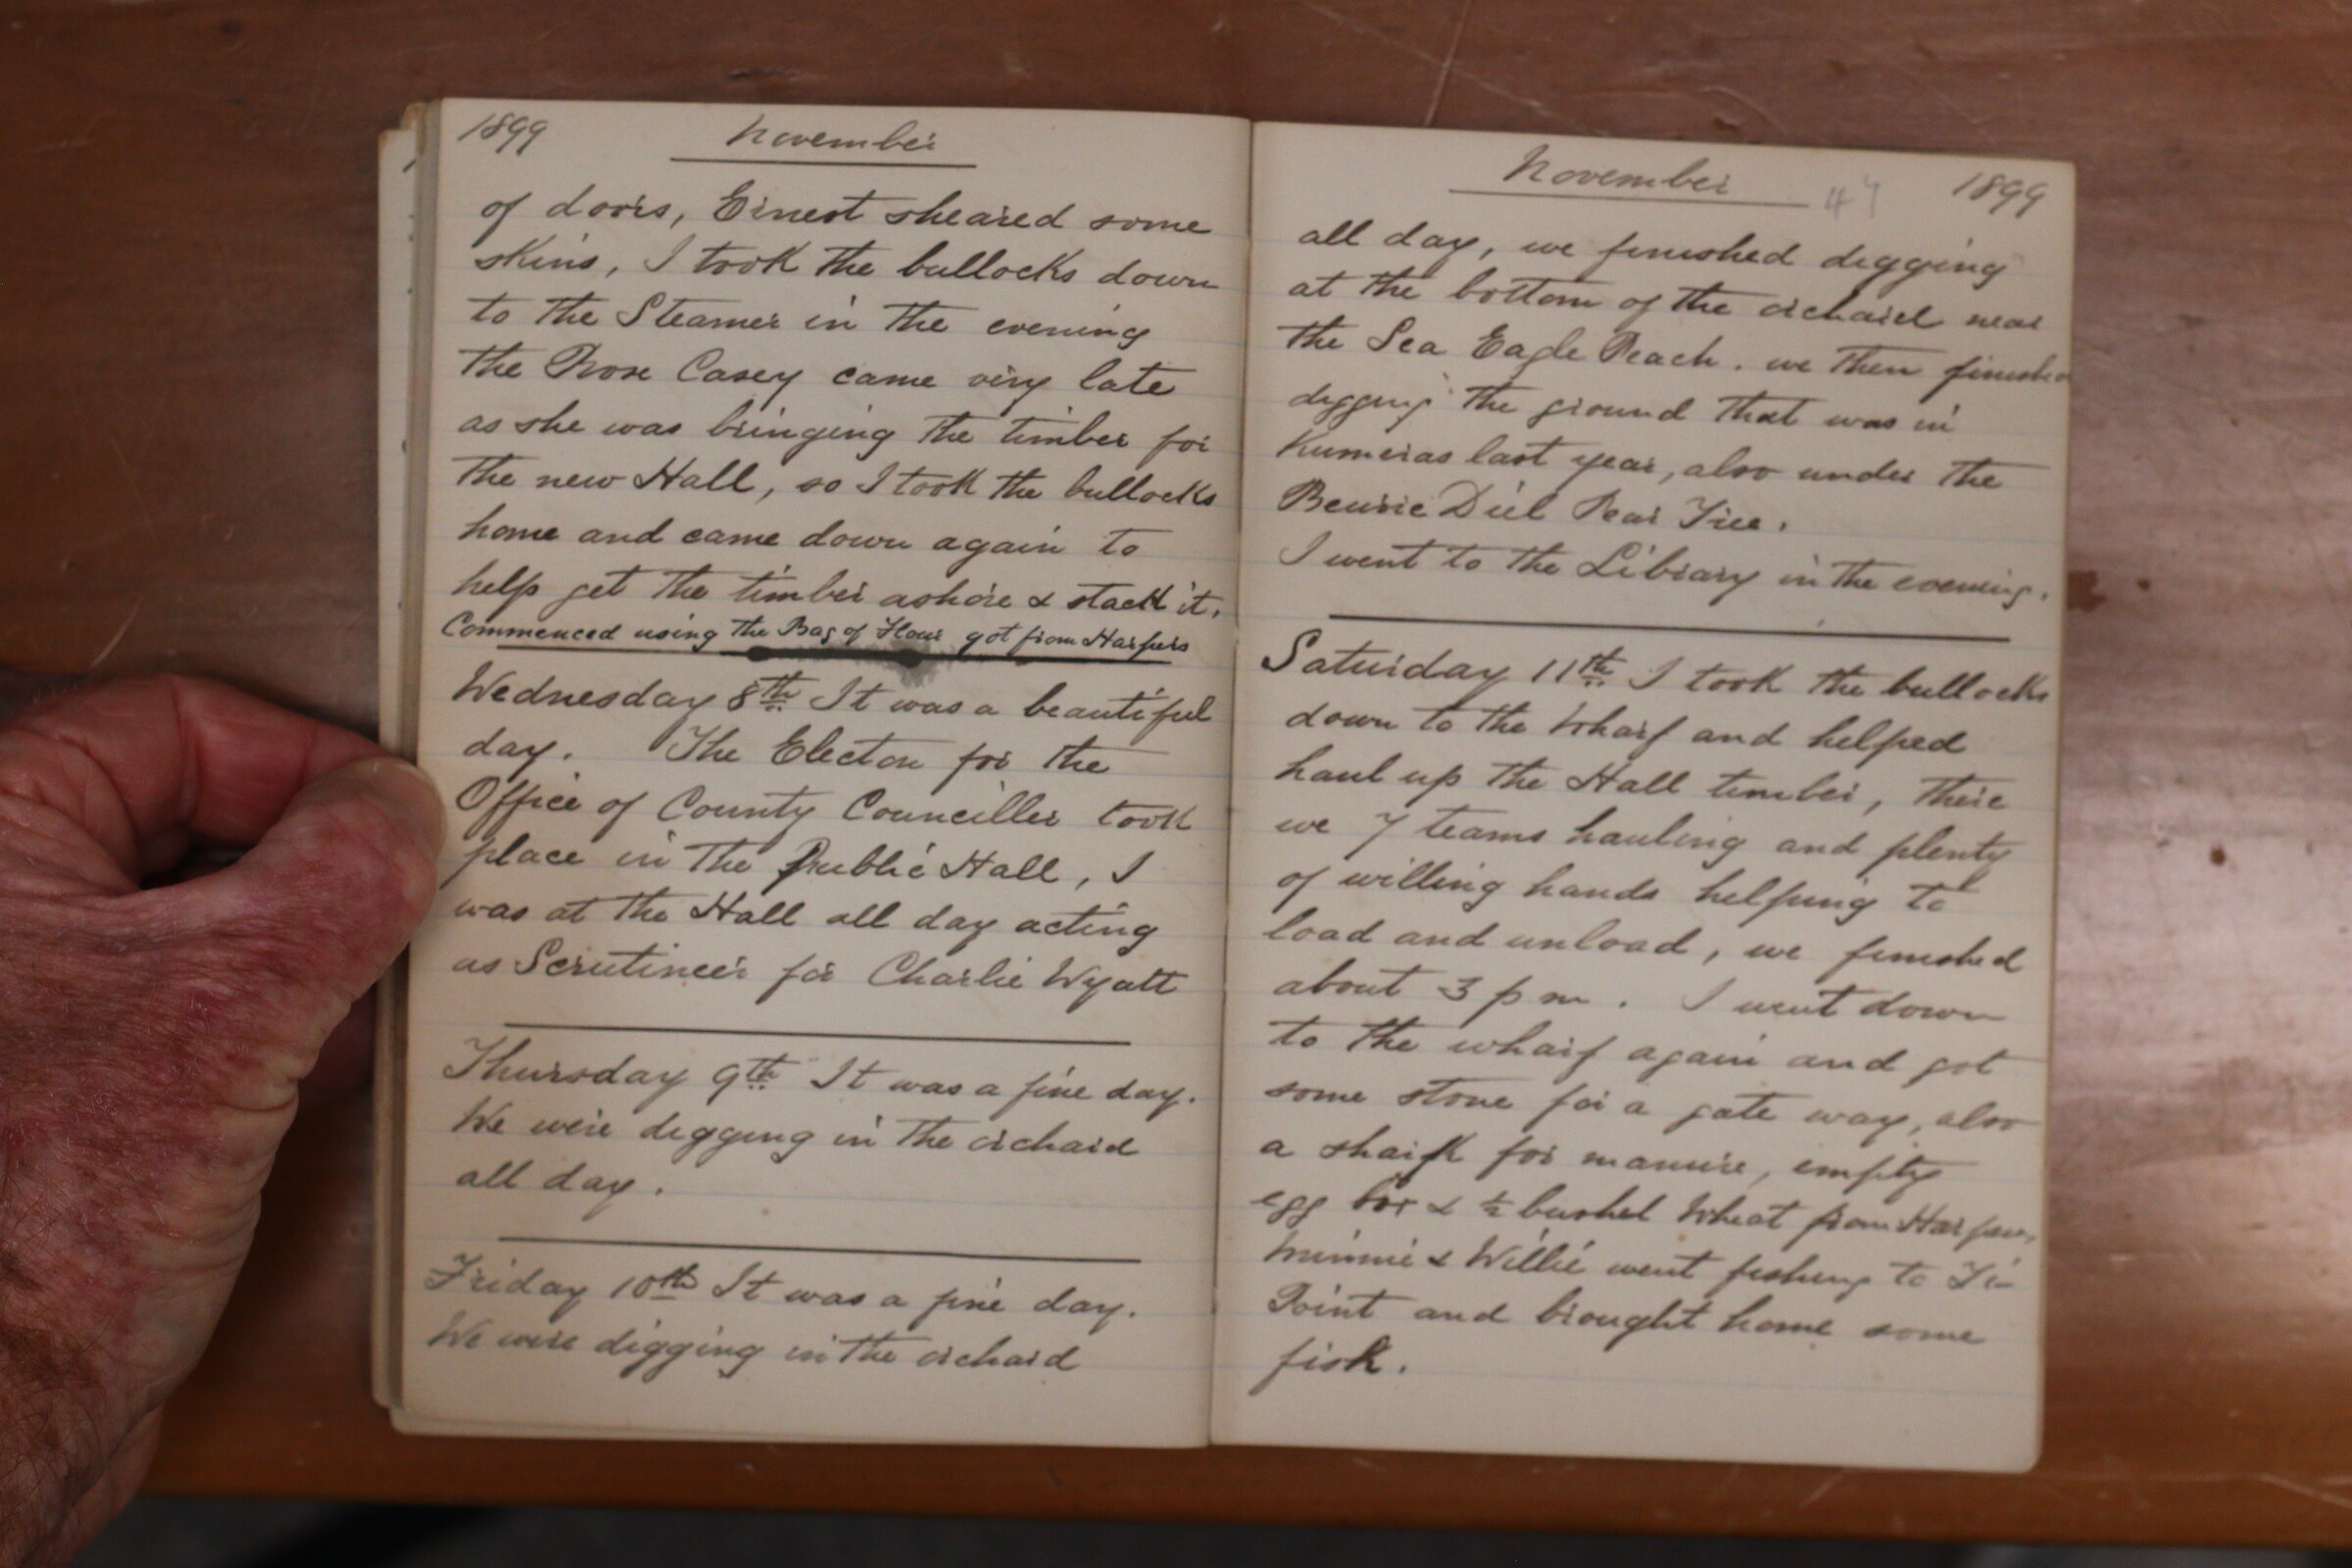 1899 November
of doors, Ernest sheared some
skins, I took the bullocks down
to the Steamer in the evening
the Rose Casey came very late
as she was bringing the timber for
the new Hall, so I took the bullocks
home and came down again to
help get the timber ashore & stack it.
Commenced using the Bag of Flour got from Harpers
Wednesday 8th It was a beautiful
day. The Electon for the
Office of County Counciller took
place in the Public Hall, I
was at the Hall all day acting
as Scrutineer for Charlie Wyatt
Thursday 9th It was a fine day.
We were digging in the orchard
all day.
Friday 10th It was a fine day.
We were digging in the orchard
November 47 1899
all day, we finished digging
at the bottom of the orchard near
the Sea Eagle Peach. we then finished
digging the ground that was in
Kumeras last year, also under the
Beurre Diel Pear Tree.
I went to the Library in the evening.
Saturday 11th I took the bullocks
down to the Wharf and helped
haul up the Hall timber, there
we 7 teams hauling and plenty
of willing hands helping to
load and unload, we finished
about 3 p m. I went down
to the wharf again and got
some stone for a gate way, also
a shark for manure, empty
egg box & ½ bushel Wheat from Harpers,
Minnie & Willie went fishing to Ti-
Point and brought home some
fish.